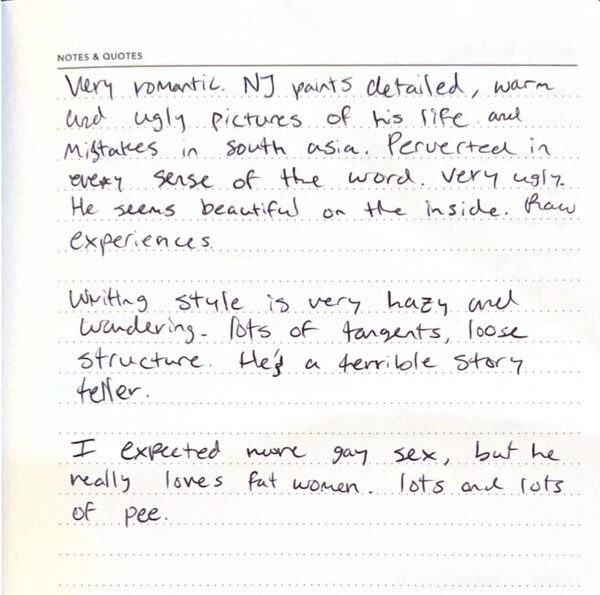 NOTES & QUOTES
Very romantic. NJ paints detailed, warm
and ugly pictures of his life and
mistakes in south asia. Perverted in
every sense of the word. Very ugly.
He seems beautiful on the inside. Raw
experiences.
Writing style is very hazy and
wandering. lots of tangents, loose
structure. He's a terrible story
teller.
I expected more gay sex, but he
really loves fat women. lots and lots
of pee.